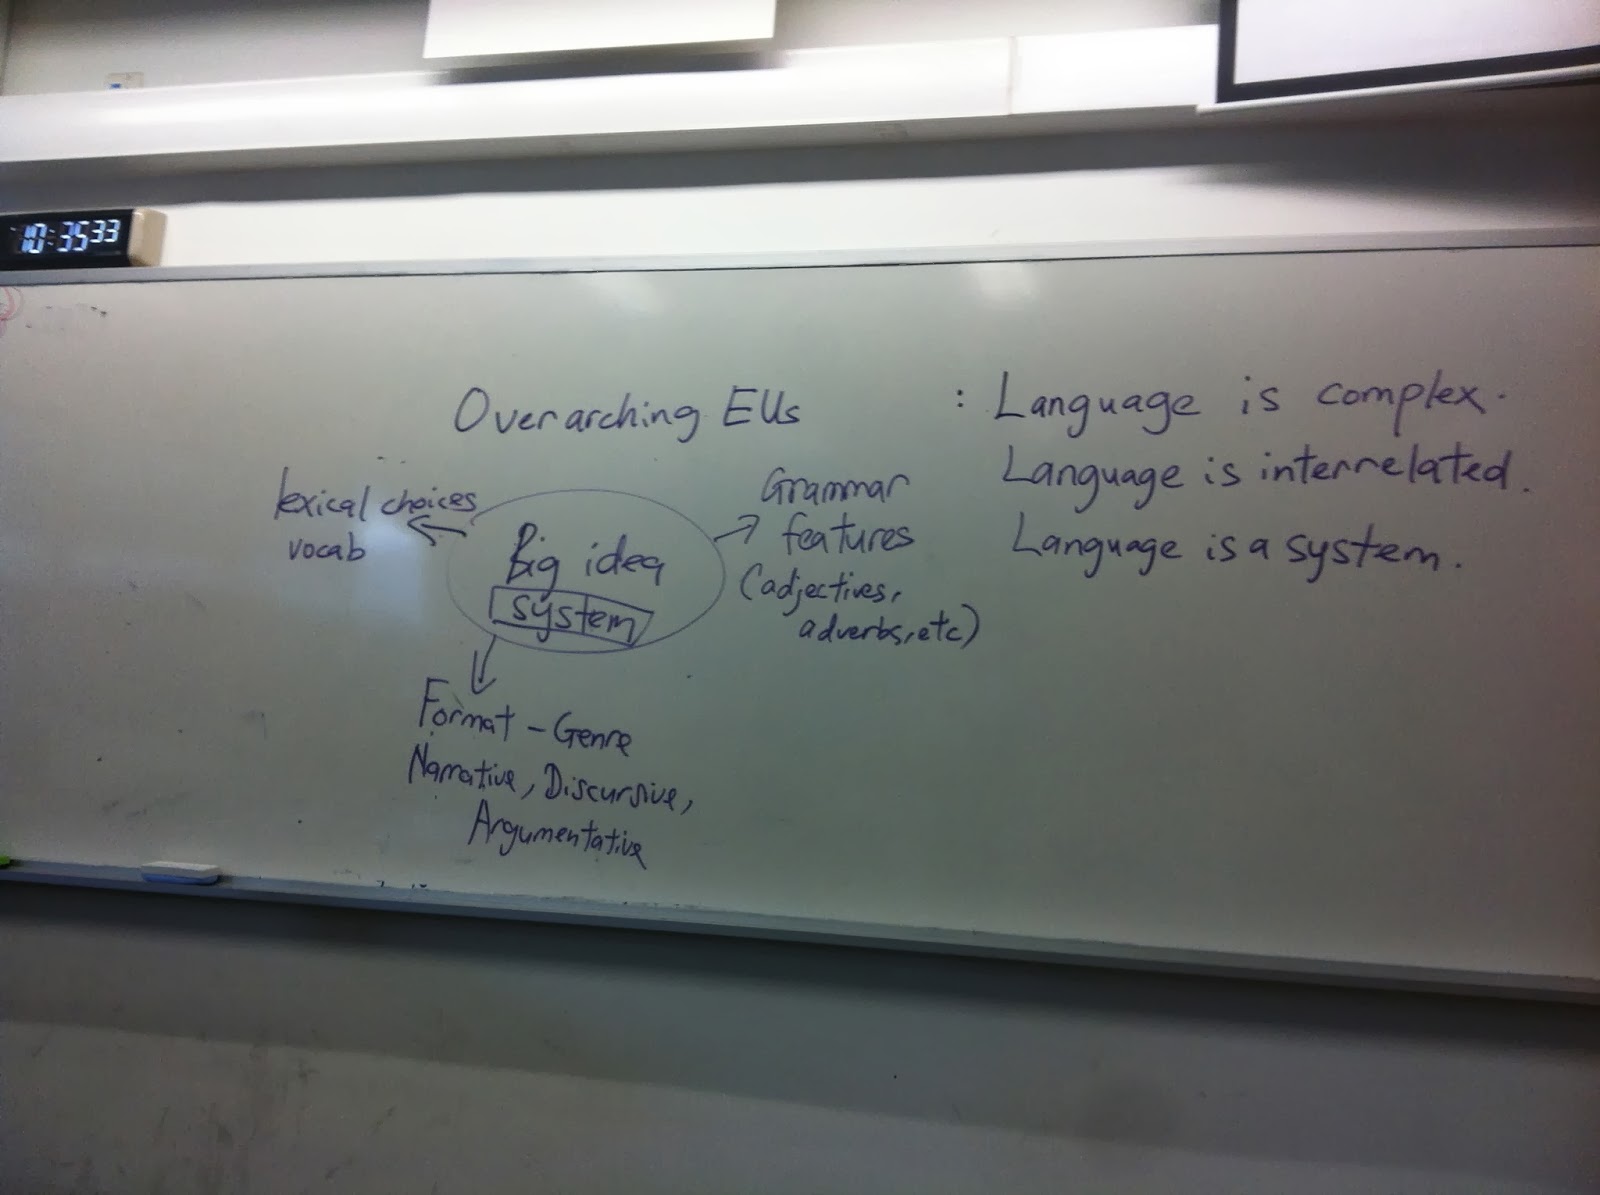 10:35 33
Overarching EUs : Language is complex.
Language is interrelated.
Language is a system.
lexical choices
vocab
Big idea
system
Grammar
features
(adjectives,
adverbs, etc)
Format - Genre
Narrative, Discursive,
Argumentative